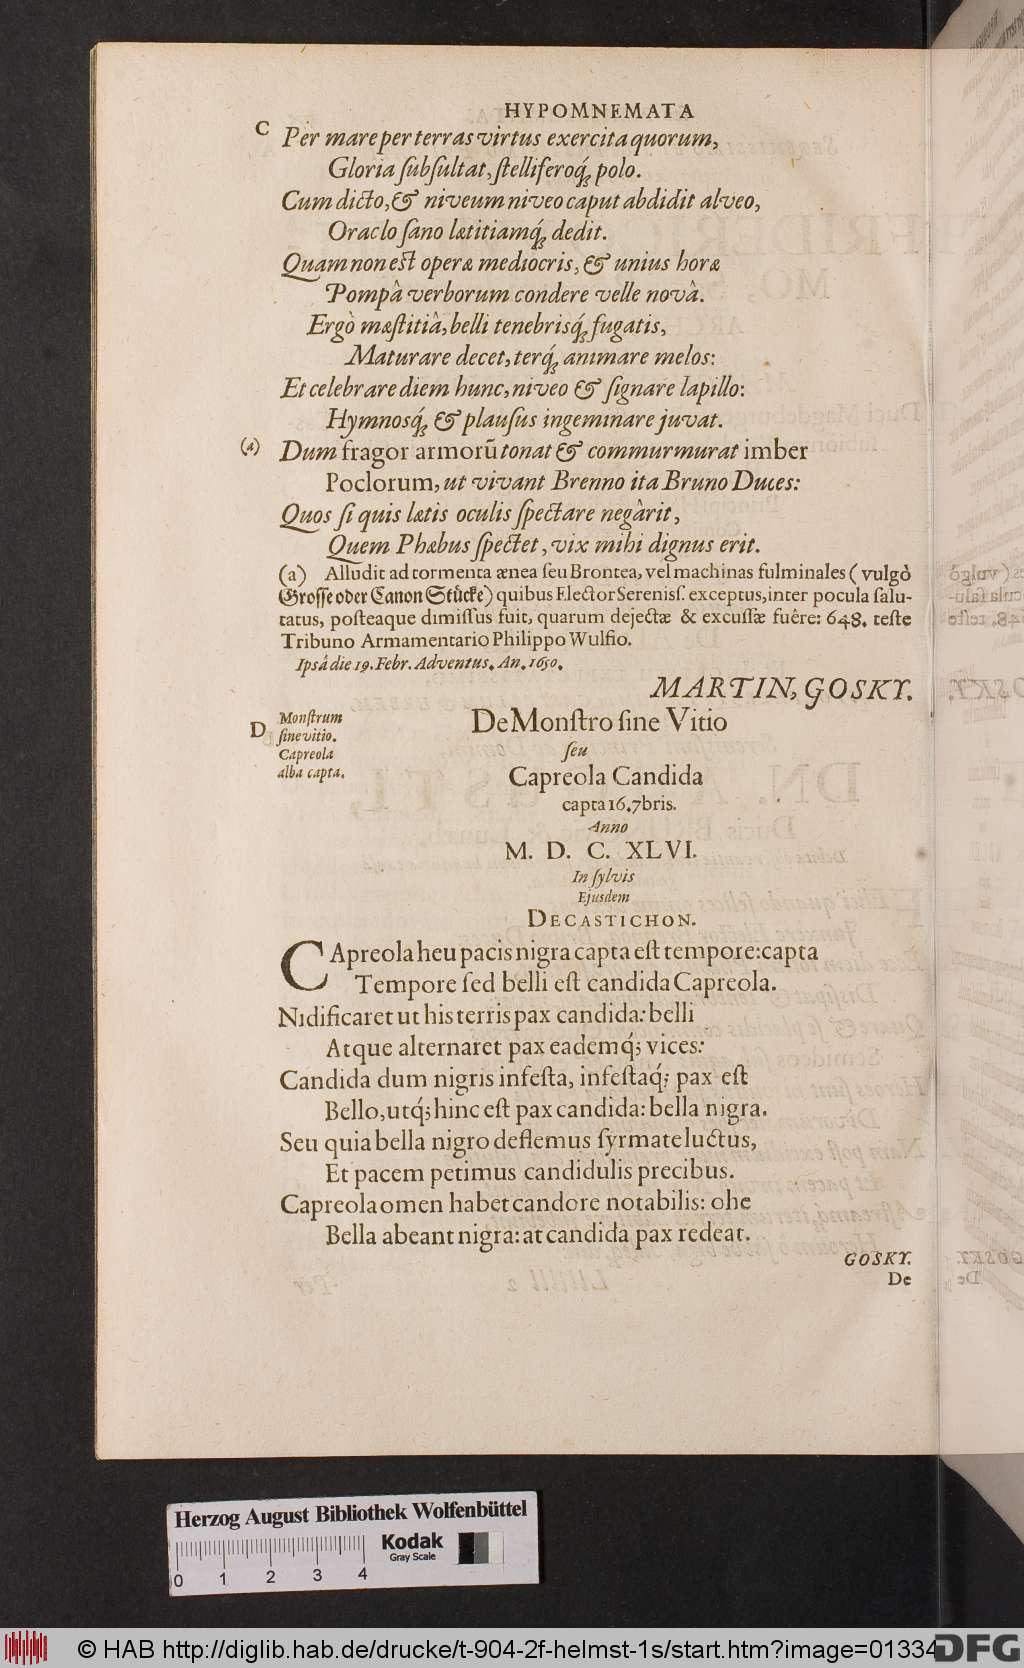 HYPOMNEMATA
C Per mare per terras virtus exercita quorum,
Gloria ſubſultat, ſtelliferoq́; polo.
Cum dicto, & niveum niveo caput abdidit alveo,
Oraclo ſano lætitiamq́; dedit.
Quam non eſt operæ mediocris, & unius horæ
Pompâ verborum condere velle novâ.
Ergò mæſtitiâ, belli tenebrisq́; fugatis,
Maturare decet, terq́; animare melos:
Et celebrare diem hunc, niveo & ſignare lapillo:
Hymnosq́; & plauſus ingeminare juvat.
(a) Dum fragor armorū tonat & commurmurat imber
Poclorum, ut vivant Brenno ita Bruno Duces:
Quos ſi quis lætis oculis ſpectare negârit,
Quem Phœbus ſpectet, vix mihi dignus erit.
(a) Alludit ad tormenta ænea ſeu Brontea, vel machinas fulminales (vulgò
Groſſe oder Canon Stücke) quibus Elector Sereniſſ. exceptus, inter pocula ſalu-
tatus, poſteaque dimiſſus fuit, quarum dejectæ & excuſſæ fuêre: 648. teſte
Tribuno Armamentario Philippo Wulfio.
Ipsâ die 19. Febr. Adventus. An. 1650.
MARTIN, GOSKY.
D Monſtrum
ſine vitio.
Capreola
alba capta.
De Monſtro ſine Vitio
ſeu
Capreola Candida
capta 16. 7bris.
Anno
M. D. C. XLVI.
In ſylvis
Ejusdem
DECASTICHON.
CApreola heu pacis nigra capta eſt tempore: capta
Tempore ſed belli eſt candida Capreola.
Nidificaret ut his terris pax candida: belli
Atque alternaret pax eademq́; vices:
Candida dum nigris infeſta, infeſtaq́; pax eſt
Bello, utq́; hinc eſt pax candida: bella nigra.
Seu quia bella nigro deflemus ſyrmate luctus,
Et pacem petimus candidulis precibus.
Capreola omen habet candore notabilis: ohe
Bella abeant nigra: at candida pax redeat.
GOSKY.
De
Herzog August Bibliothek Wolfenbüttel
Kodak
Gray Scale
0 1 2 3 4
© HAB http://diglib.hab.de/drucke/t-904-2f-helmst-1s/start.htm?image=01334
DFG